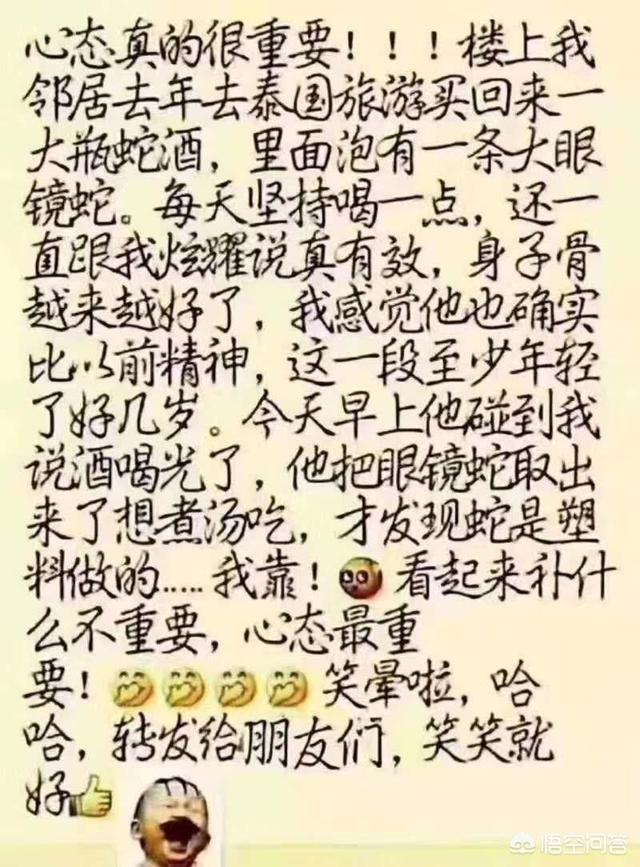 心态真的很重要！！！楼上我
邻居去年去泰国旅游买回来一
大瓶蛇酒，里面泡有一条大眼
镜蛇。每天坚持喝一点，还一
直跟我炫耀说真有效，身子骨
越来越好了，我感觉他也确实
比以前精神，这一段至少年轻
了好几岁。今天早上他碰到我
说酒喝光了，他把眼镜蛇取出
来了想煮汤吃，才发现蛇是塑
料做的.....我靠！看起来补什
么不重要，心态最重
要！笑晕啦，哈
哈，转发给朋友们，笑笑就
好
悟空问答